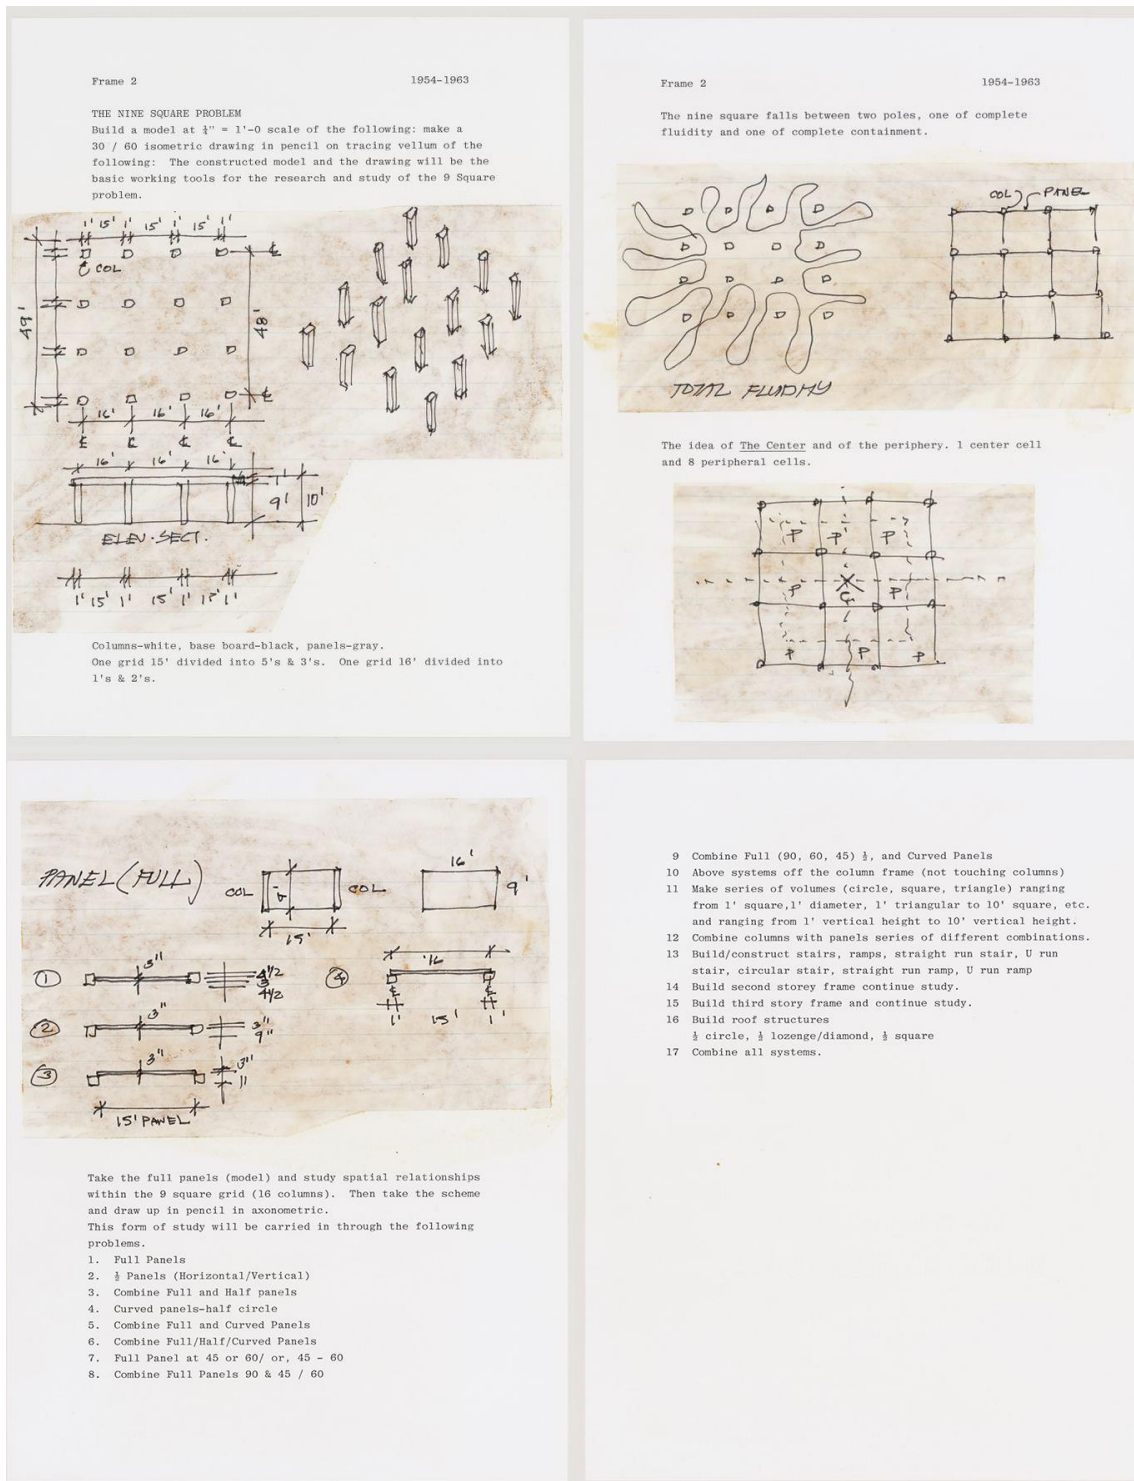 Frame 2 1954-1963
THE NINE SQUARE PROBLEM
Build a model at ¼" = 1'-0 scale of the following: make a
30 / 60 isometric drawing in pencil on tracing vellum of the
following: The constructed model and the drawing will be the
basic working tools for the research and study of the 9 Square
problem.
1' 15' 1' 15' 1' 15' 1'
℄
COL
49'
48'
℄
16' 16' 16'
℄ ℄ ℄ ℄
16' 16' 16'
1'
9' 10'
ELEV. SECT.
1' 15' 1' 15' 1' 15' 1'
Columns-white, base board-black, panels-gray.
One grid 15' divided into 5's & 3's. One grid 16' divided into
1's & 2's.
Frame 2 1954-1963
The nine square falls between two poles, one of complete
fluidity and one of complete containment.
COL PANEL
TOTAL FLUIDITY
The idea of The Center and of the periphery. 1 center cell
and 8 peripheral cells.
P P P
P C P
P P P
PANEL (FULL)
COL 9' COL
15'
16'
9'
1 3" 4 1/2
3
4 1/2
2 3" 3"
9"
3 3" 3"
11
15' PANEL
4 16
℄ ℄
1' 15' 1'
Take the full panels (model) and study spatial relationships
within the 9 square grid (16 columns). Then take the scheme
and draw up in pencil in axonometric.
This form of study will be carried in through the following
problems.
1. Full Panels
2. ½ Panels (Horizontal/Vertical)
3. Combine Full and Half panels
4. Curved panels-half circle
5. Combine Full and Curved Panels
6. Combine Full/Half/Curved Panels
7. Full Panel at 45 or 60/ or, 45 - 60
8. Combine Full Panels 90 & 45 / 60
9 Combine Full (90, 60, 45) ½, and Curved Panels
10 Above systems off the column frame (not touching columns)
11 Make series of volumes (circle, square, triangle) ranging
from 1' square,1' diameter, 1' triangular to 10' square, etc.
and ranging from 1' vertical height to 10' vertical height.
12 Combine columns with panels series of different combinations.
13 Build/construct stairs, ramps, straight run stair, U run
stair, circular stair, straight run ramp, U run ramp
14 Build second storey frame continue study.
15 Build third story frame and continue study.
16 Build roof structures
½ circle, ½ lozenge/diamond, ½ square
17 Combine all systems.